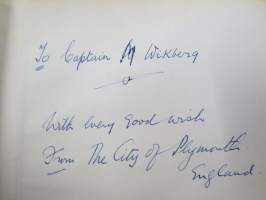 To Captain M Wikberg
With every good wish
From The City of Plymouth
England.